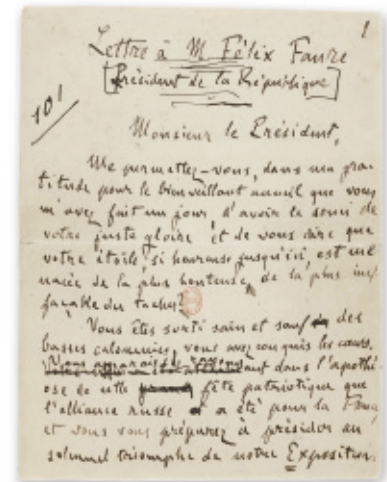 1
Lettre à M. Félix Faure
[Président de la République]
101
Monsieur le Président,
Me permettez-vous, dans ma gra-
titude pour le bienveillant accueil que vous
m'avez fait un jour, d'avoir le souci de
votre juste gloire et de vous dire que
votre étoile, si heureuse jusqu'ici, est me
nacée de la plus honteuse, de la plus inef
façable des taches?
Vous êtes sorti sain et sauf des
basses calomnies, vous avez conquis les cœurs.
Vous apparaissez rayonnant dans l'apothé-
ose de cette fête patriotique que
l'alliance russe a été pour la France,
et vous vous préparez à présider au
solennel triomphe de notre Exposition